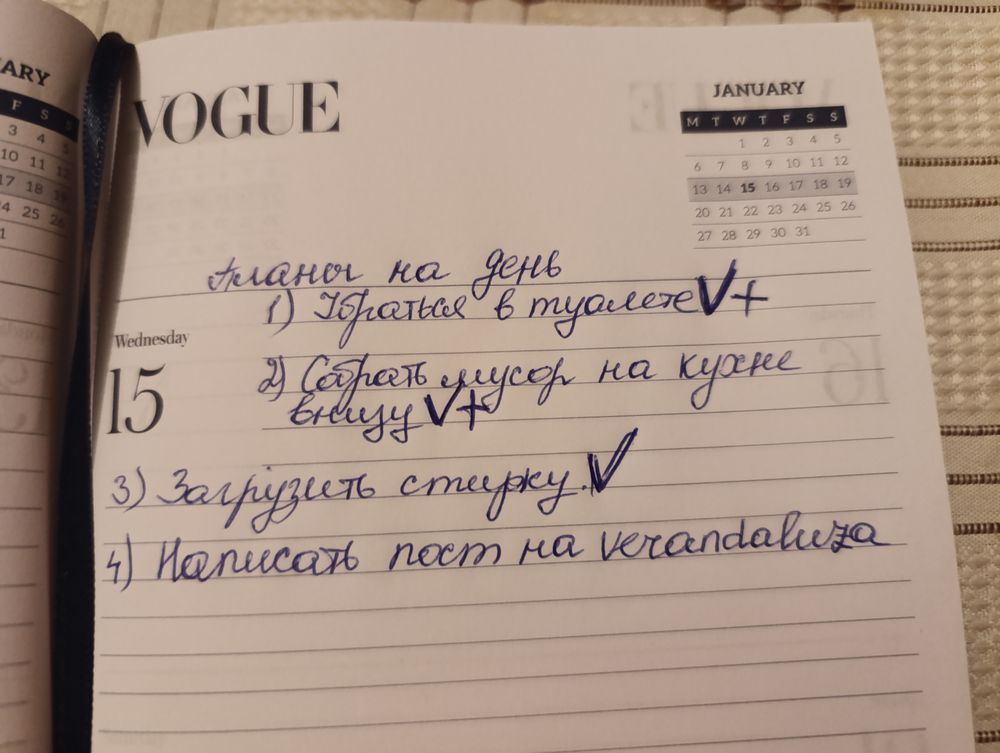 ARY
F S S
3 4 5
10 11 12
17 18 19
24 25 26
31
VOGUE
JANUARY
M T W T F S S
1 2 3 4 5
6 7 8 9 10 11 12
13 14 15 16 17 18 19
20 21 22 23 24 25 26
27 28 29 30 31
Планы на день
1) Убраться в туалете V+
Wednesday
15
2) Собрать мусор на кухне
внизу V+
3) Загрузить стирку. V
4) Написать пост на verandaluza